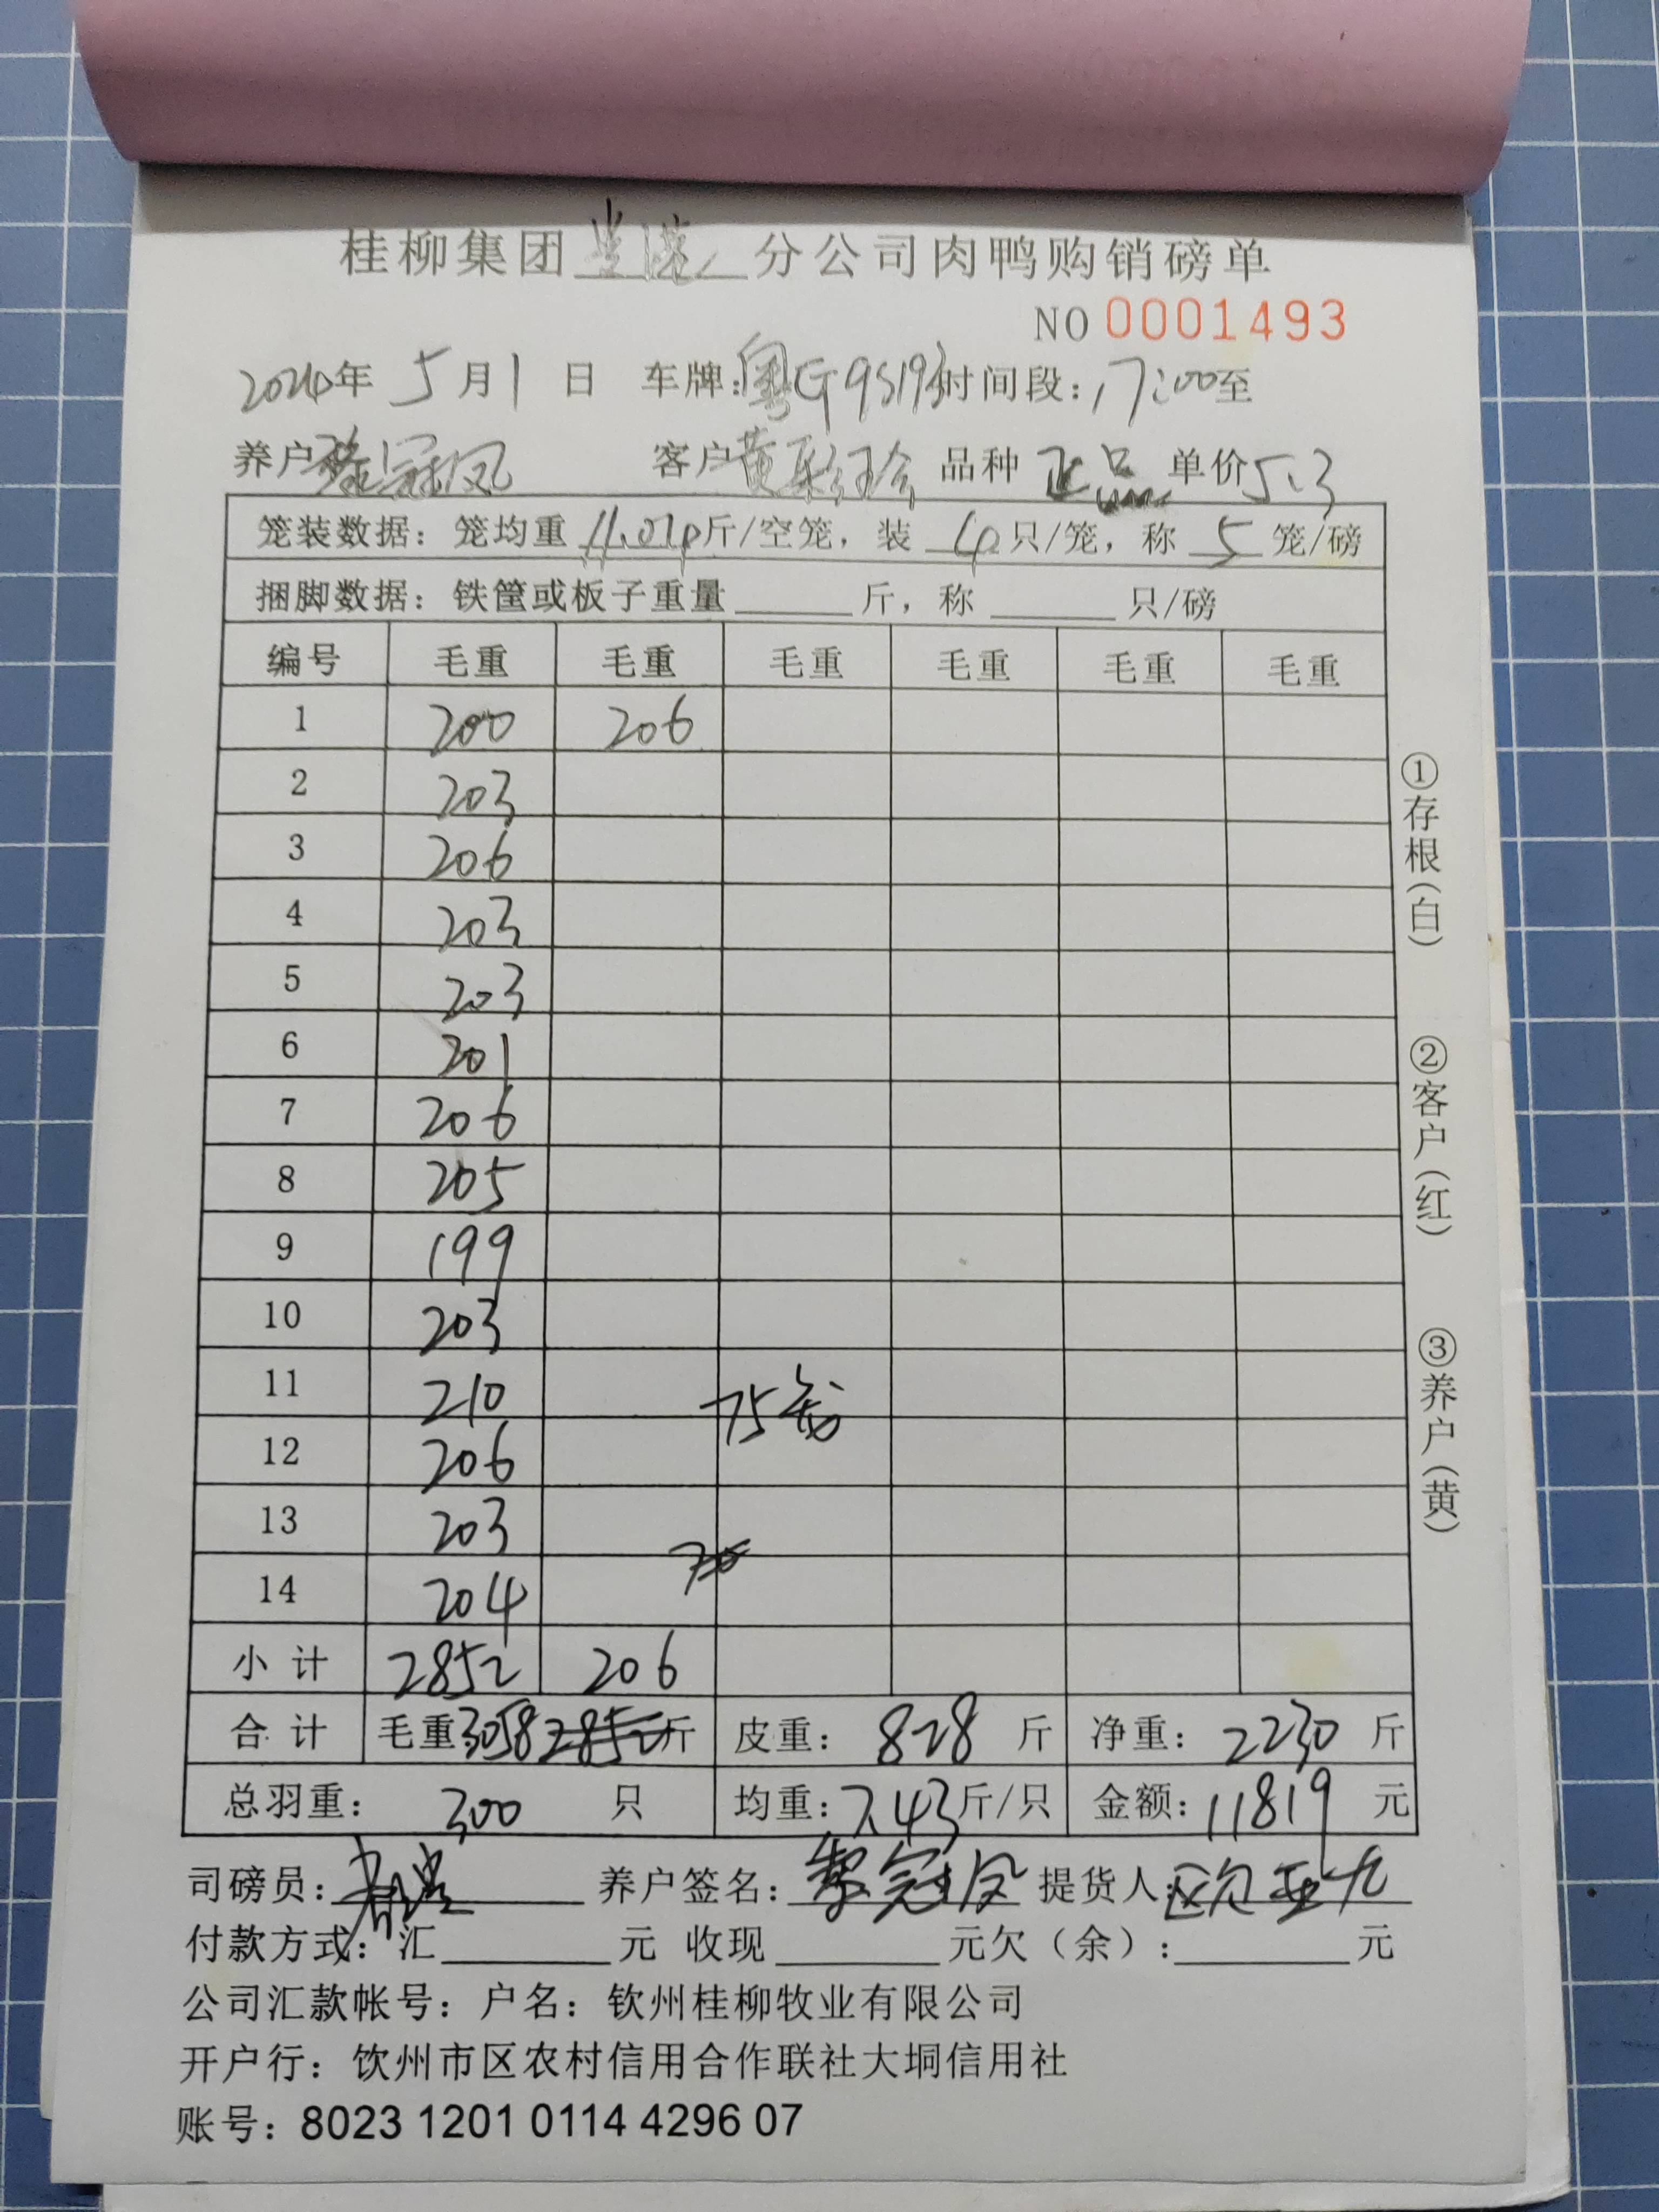 桂柳集团 分公司肉鸭购销磅单
NO 0001493
2020年 5月1日 车牌:粤G9S193时间段:17:00至
养户 冠凤 客户黄 品种 正品 单价5.3
笼装数据:笼均重 11.04斤/空笼,装 4只/笼,称 5 笼/磅
捆脚数据:铁筐或板子重量______斤,称______只/磅
编号 毛重 毛重 毛重 毛重 毛重 毛重
1 200 206
2 203
3 206
4 203
5 203
6 201
7 206
8 205
9 199
10 203
11 210
12 206
75笼
13 203
14 204
小计 2852 206
合计 毛重3058 2852斤 皮重: 828 斤 净重: 2230 斤
总羽重: 300 只 均重:7.43斤/只 金额:11819 元
司磅员: 养户签名:黎冠凤 提货人:欧亚九
付款方式:汇______元 收现______元欠(余):______元
公司汇款帐号:户名:钦州桂柳牧业有限公司
开户行:饮州市区农村信用合作联社大垌信用社
账号:8023 1201 0114 4296 07
①存根(白)
②客户(红)
③养户(黄)